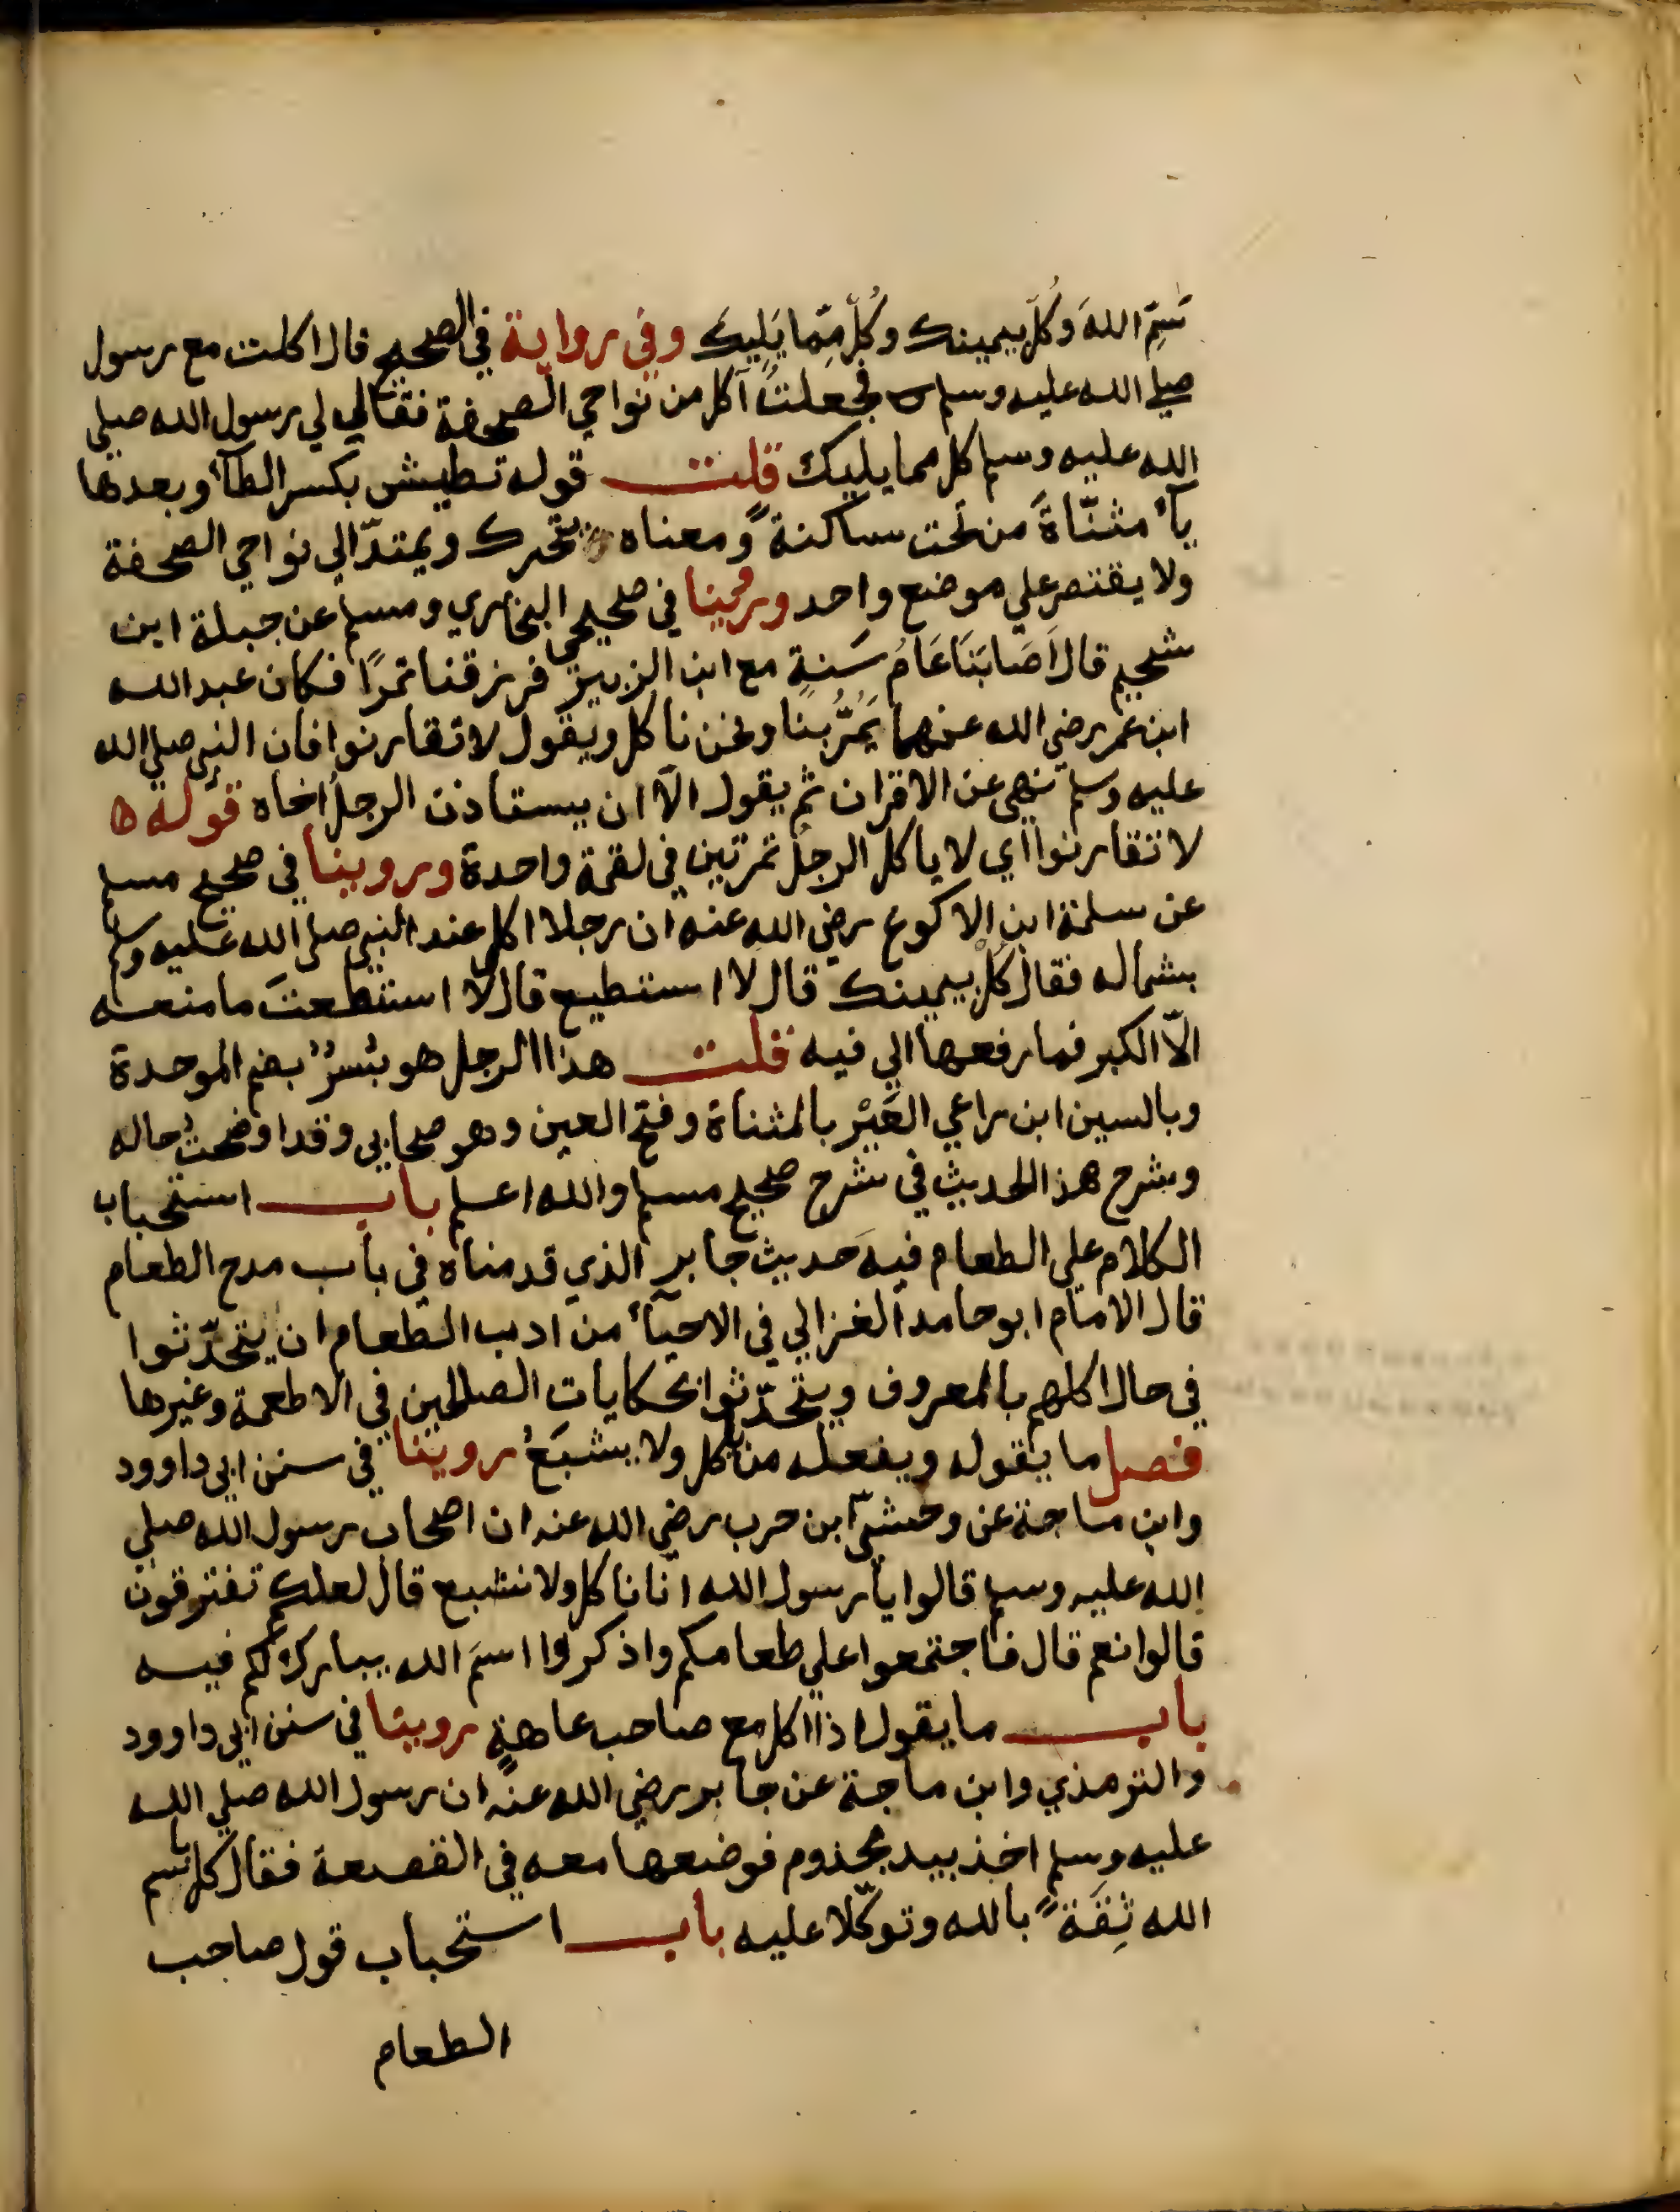 سَمِّ اللهَ وَكُلْ بيمينك وكُلْ مِمّا يَلِيكَ وفي رواية في الصحيح قال اكلت مع رسول
صلي الله عليه وسلم فجعلتُ آكل من نواحي الصحفة فقال لي رسول الله صلي
الله عليه وسلم كل مما يليك قلت قوله تطيش بكسر الطآء وبعدها
يآء مثنّاة من تحت ساكنة ومعناه يتحرك ويمتدّ الي نواحي الصحفة
ولا يقتصر علي موضع واحد وروينا في صحيحي البخاري ومسلم عن جبلة ابن
سحيم قال اَصَابَنَا عَامُ سَنةٍ مع ابن الزبير فرزقنا تمرًا فكان عبد الله
ابن عمر رضي الله عنهما يَمُرُّ بنا ونحن ناكل ويقول لا تقارنوا فان النبي صلي الله
عليه وسلم نهي عن الاقران ثم يقول الّا ان يستاذن الرجلُ اخاه قوله
لا تقارنوا اي لا ياكل الرجلُ تمرتين في لقمة واحدة وروينا في صحيح مسلم
عن سلمة ابن الاكوع رضي الله عنه ان رجلا اكل عند النبي صلي الله عليه وسلم
بشماله فقال كُلْ بيمينك قال لا استطيع قال لا استطعتَ ما منعه
الّا الكبر فما رفعها الي فيه قلت هذا الرجل هو بُسرٌ بضم الموحدة
وبالسين ابن راعي العَيْر بالمثناة وفتح العين وهو صحابي وقد اوضحتُ حاله
وشرح هذا الحديث في شرح صحيح مسلم والله اعلم باب استحباب
الكلام علي الطعام فيه حديث جابر الذي قدمناه في باب مدح الطعام
قال الامام ابو حامد الغزالي في الاحيآء من ادب الطعام ان يتحدّثوا
في حال اكلهم بالمعروف ويتحدّثوا بحكايات الصالحين في الاطعمة وغيرها
فصل ما يقوله ويفعله من ياكل ولا يشبَعُ روينا في سنن ابي داوود
وابن ماجة عن وحشيّ ابن حرب رضي الله عنه ان اصحاب رسول الله صلي
الله عليه وسلم قالوا يا رسول الله انا ناكل ولا نشبع قال لعلكم تفترقون
قالوا نعم قال فاجتمعوا علي طعامكم واذكروا اسمَ الله يبارك لكم فيه
باب ما يقول اذا اكل مع صاحب عاهةٍ روينا في سنن ابي داوود
والترمذي وابن ماجة عن جابر رضي الله عنه ان رسول الله صلي الله
عليه وسلم اخذ بيد مجذوم فوضعها معه في القصعة فقال كل باسم
الله ثِقَةً بالله وتوكّلا عليه باب استحباب قول صاحب
الطعام